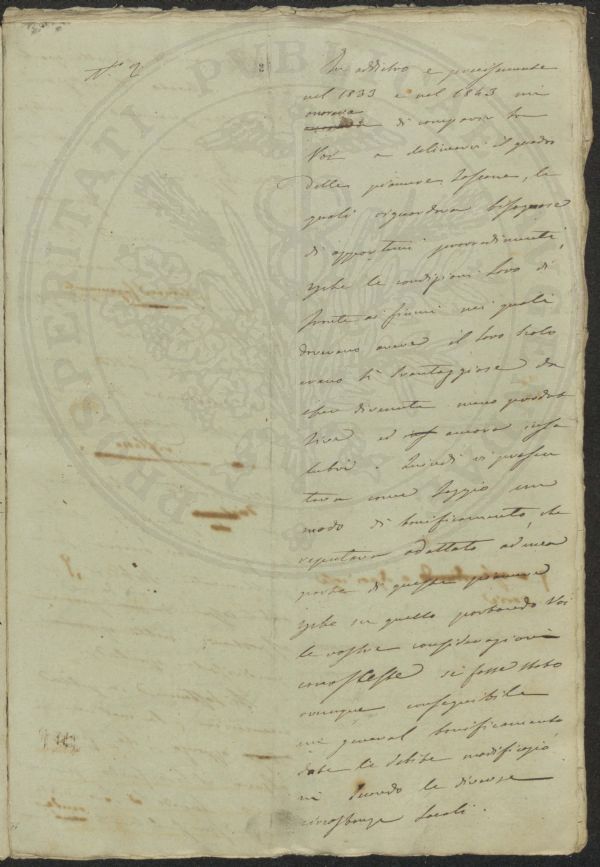 N.° 2
2
In addietro e precisamente
nel 1833 e nel 1843 mi
onorava
di comparir tra
Voi a delinearvi il quadro
delle pianure Toscane, le
quali riguardava bisognose
di opportuni provvedimenti,
perche le condizioni loro di
fronte ai fiumi nei quali
dovevano avere il loro scolo
erano sì svantaggiose da
esser divenute meno produt
tive ed ancora insa
lubri. Quindi vi presen
tava come saggio un
modo di bonificamento, che
reputava adattato ad una
parte di queste pianure
perche su quello portando Voi
le vostre considerazioni
conosceste se fosse stato
ovunque conseguibile
un general bonificamento
date le debite modificazio
ni secondo le diverse
circostanze locali.
PROSPERITATI PVBLICAE